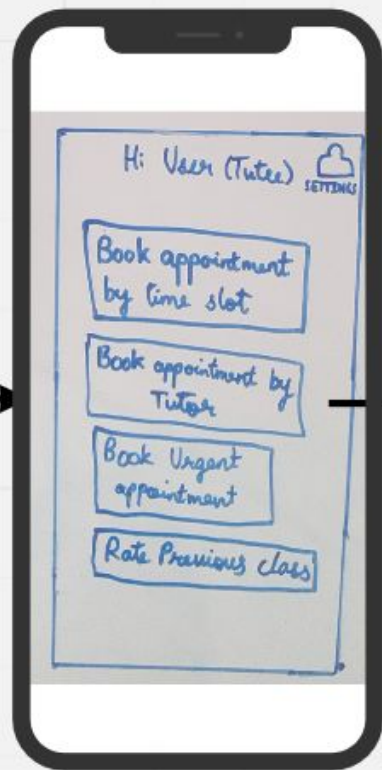 Hi User (Tutee)
SETTINGS
Book appointment
by time slot
Book appointment by
Tutor
Book Urgent
appointment
Rate Previous class